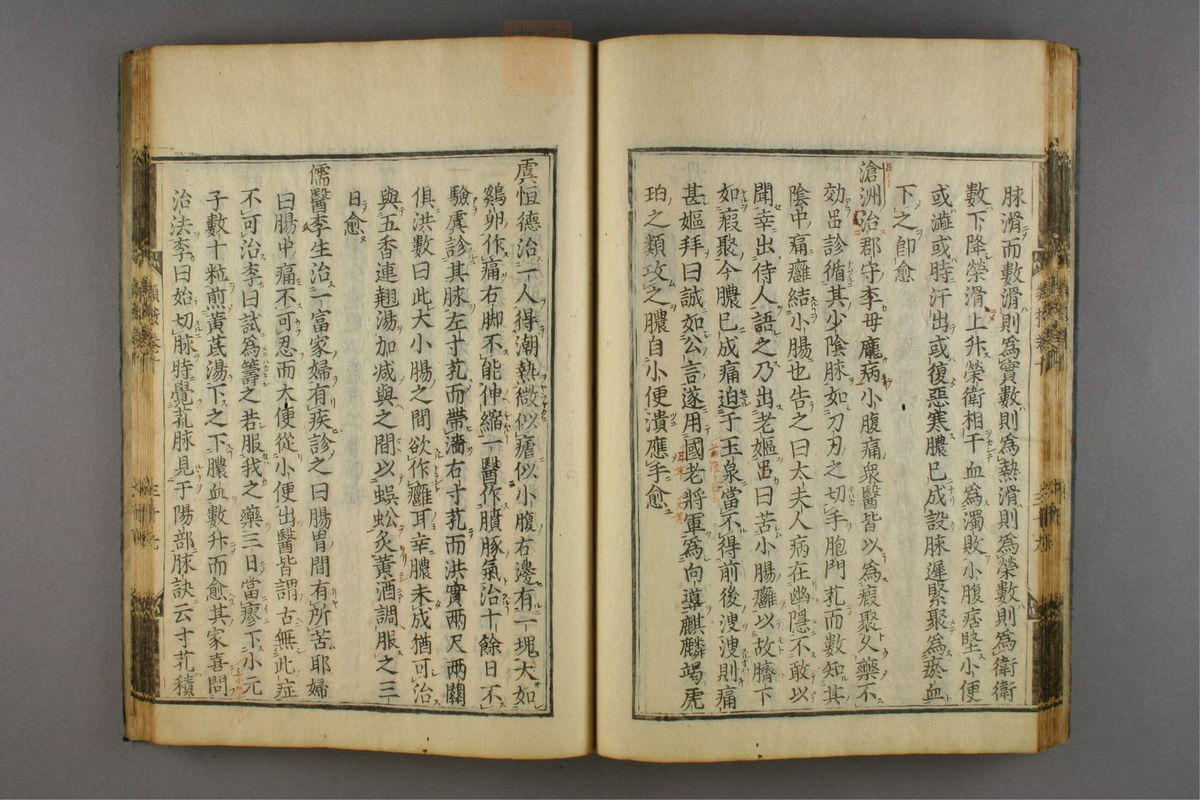 脉滑而數滑則爲實數則爲熱滑則爲榮數則爲衛衛
數下降榮滑上升榮衛相干血爲濁敗小腹痞堅小便
或澁或時汗出或復惡寒膿已成設脉遲緊聚爲瘀血
下之卽愈
滄洲治郡守李母龐病小腹痛衆醫皆以爲瘕聚久藥不
効呂診循其少陰脉如刀刃之切手胞門芤而數知其
陰中痛癰結小腸也告之曰太夫人病在幽隱不敢以
聞幸出侍人語之乃出老嫗呂曰苦小腸癰以故臍下
如瘕聚今膿已成痛迫于玉泉當不得前後溲溲則痛
甚嫗拜曰誠如公言遂用國老將軍爲向導麒麟竭虎
珀之類攻之膿自小便潰應手愈
虞恒德治一人得潮熱微似瘧似小腹右邊有一塊大如
鷄卵作痛右脚不能伸縮一醫作膹豚氣治十餘日不
驗虞診其脉左寸芤而帶濇右寸芤而洪實兩尺兩關
俱洪數曰此大小腸之間欲作癰耳幸膿未成猶可治
與五香連翹湯加减與之間以蜈蚣炙黄酒調服之三
日愈
儒醫李生治一富家婦有疾診之曰腸胃間有所苦耶婦
曰腸中痛不可忍而大便從小便出醫皆謂古無此症
不可治李曰試爲籌之若服我之藥三日當瘳下小元
子數十粒煎黄茋湯下之下膿血數升而愈其家喜問
治法李曰始切脉時覺芤脉見于陽部脉訣云寸芤積